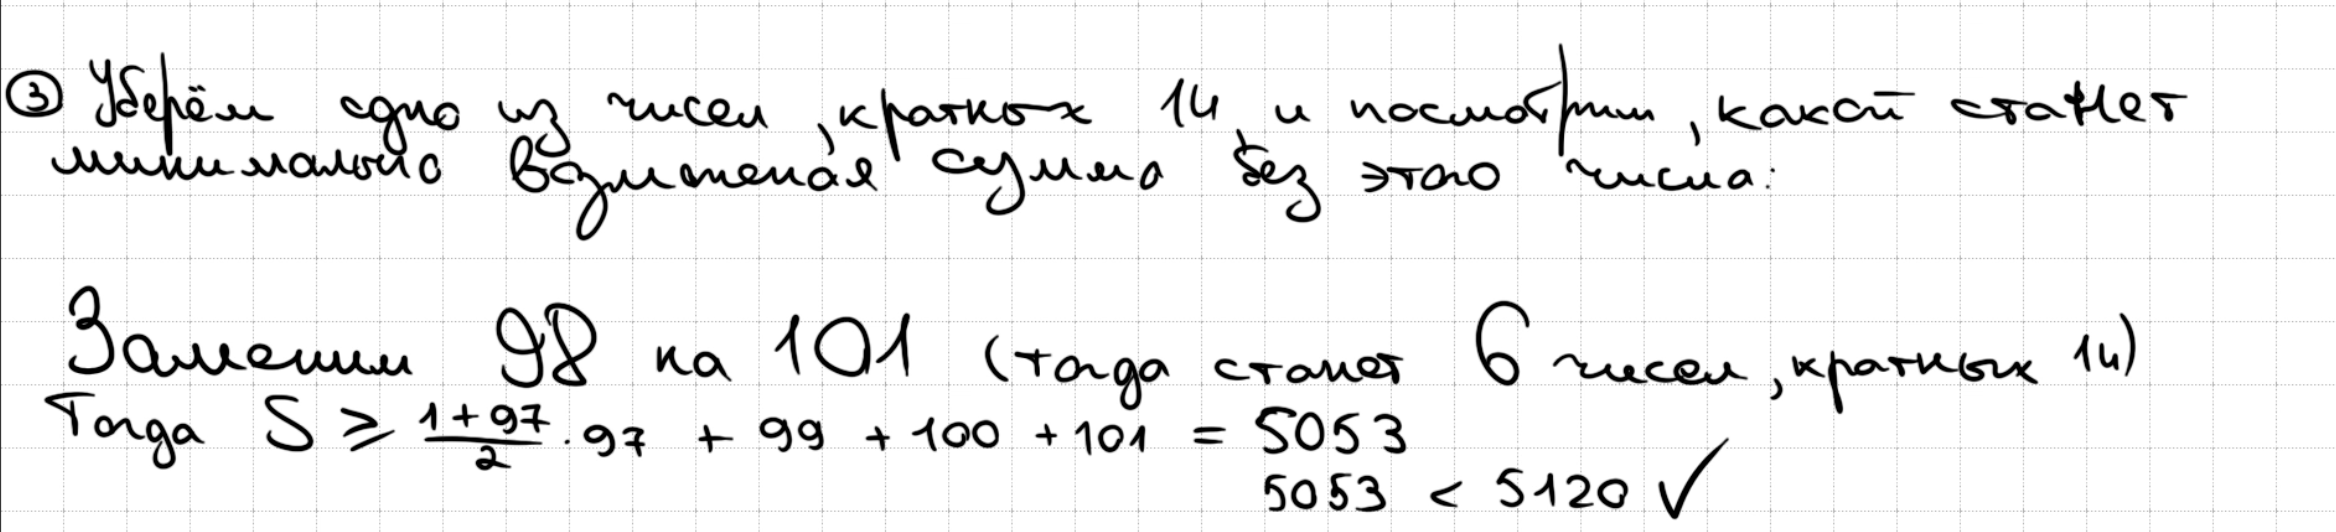 ③ Уберём одно из чисел, кратных 14, и посмотрим, какой станет
минимально возможная сумма без этого числа:
Заменим 98 на 101 (тогда станет 6 чисел, кратных 14)
Тогда S ≥ \frac{1+97}{2} · 97 + 99 + 100 + 101 = 5053
5053 < 5120 ✓